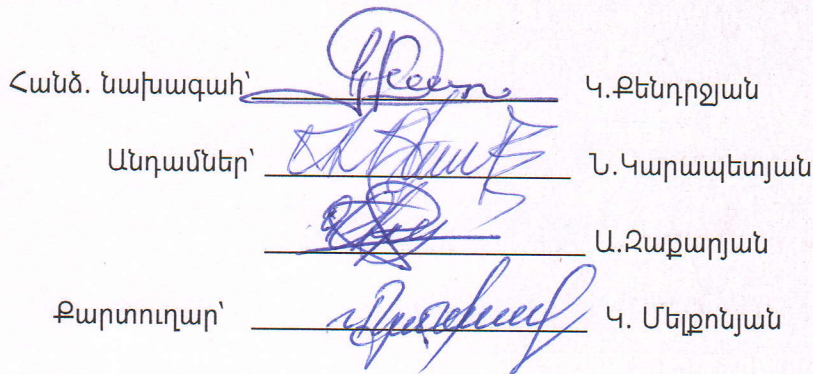 Հանձ. նախագահ՝ Կ.Քենդրջյան
Անդամներ՝ Ն.Կարապետյան
Ա.Զաքարյան
Քարտուղար՝ Կ. Մելքոնյան